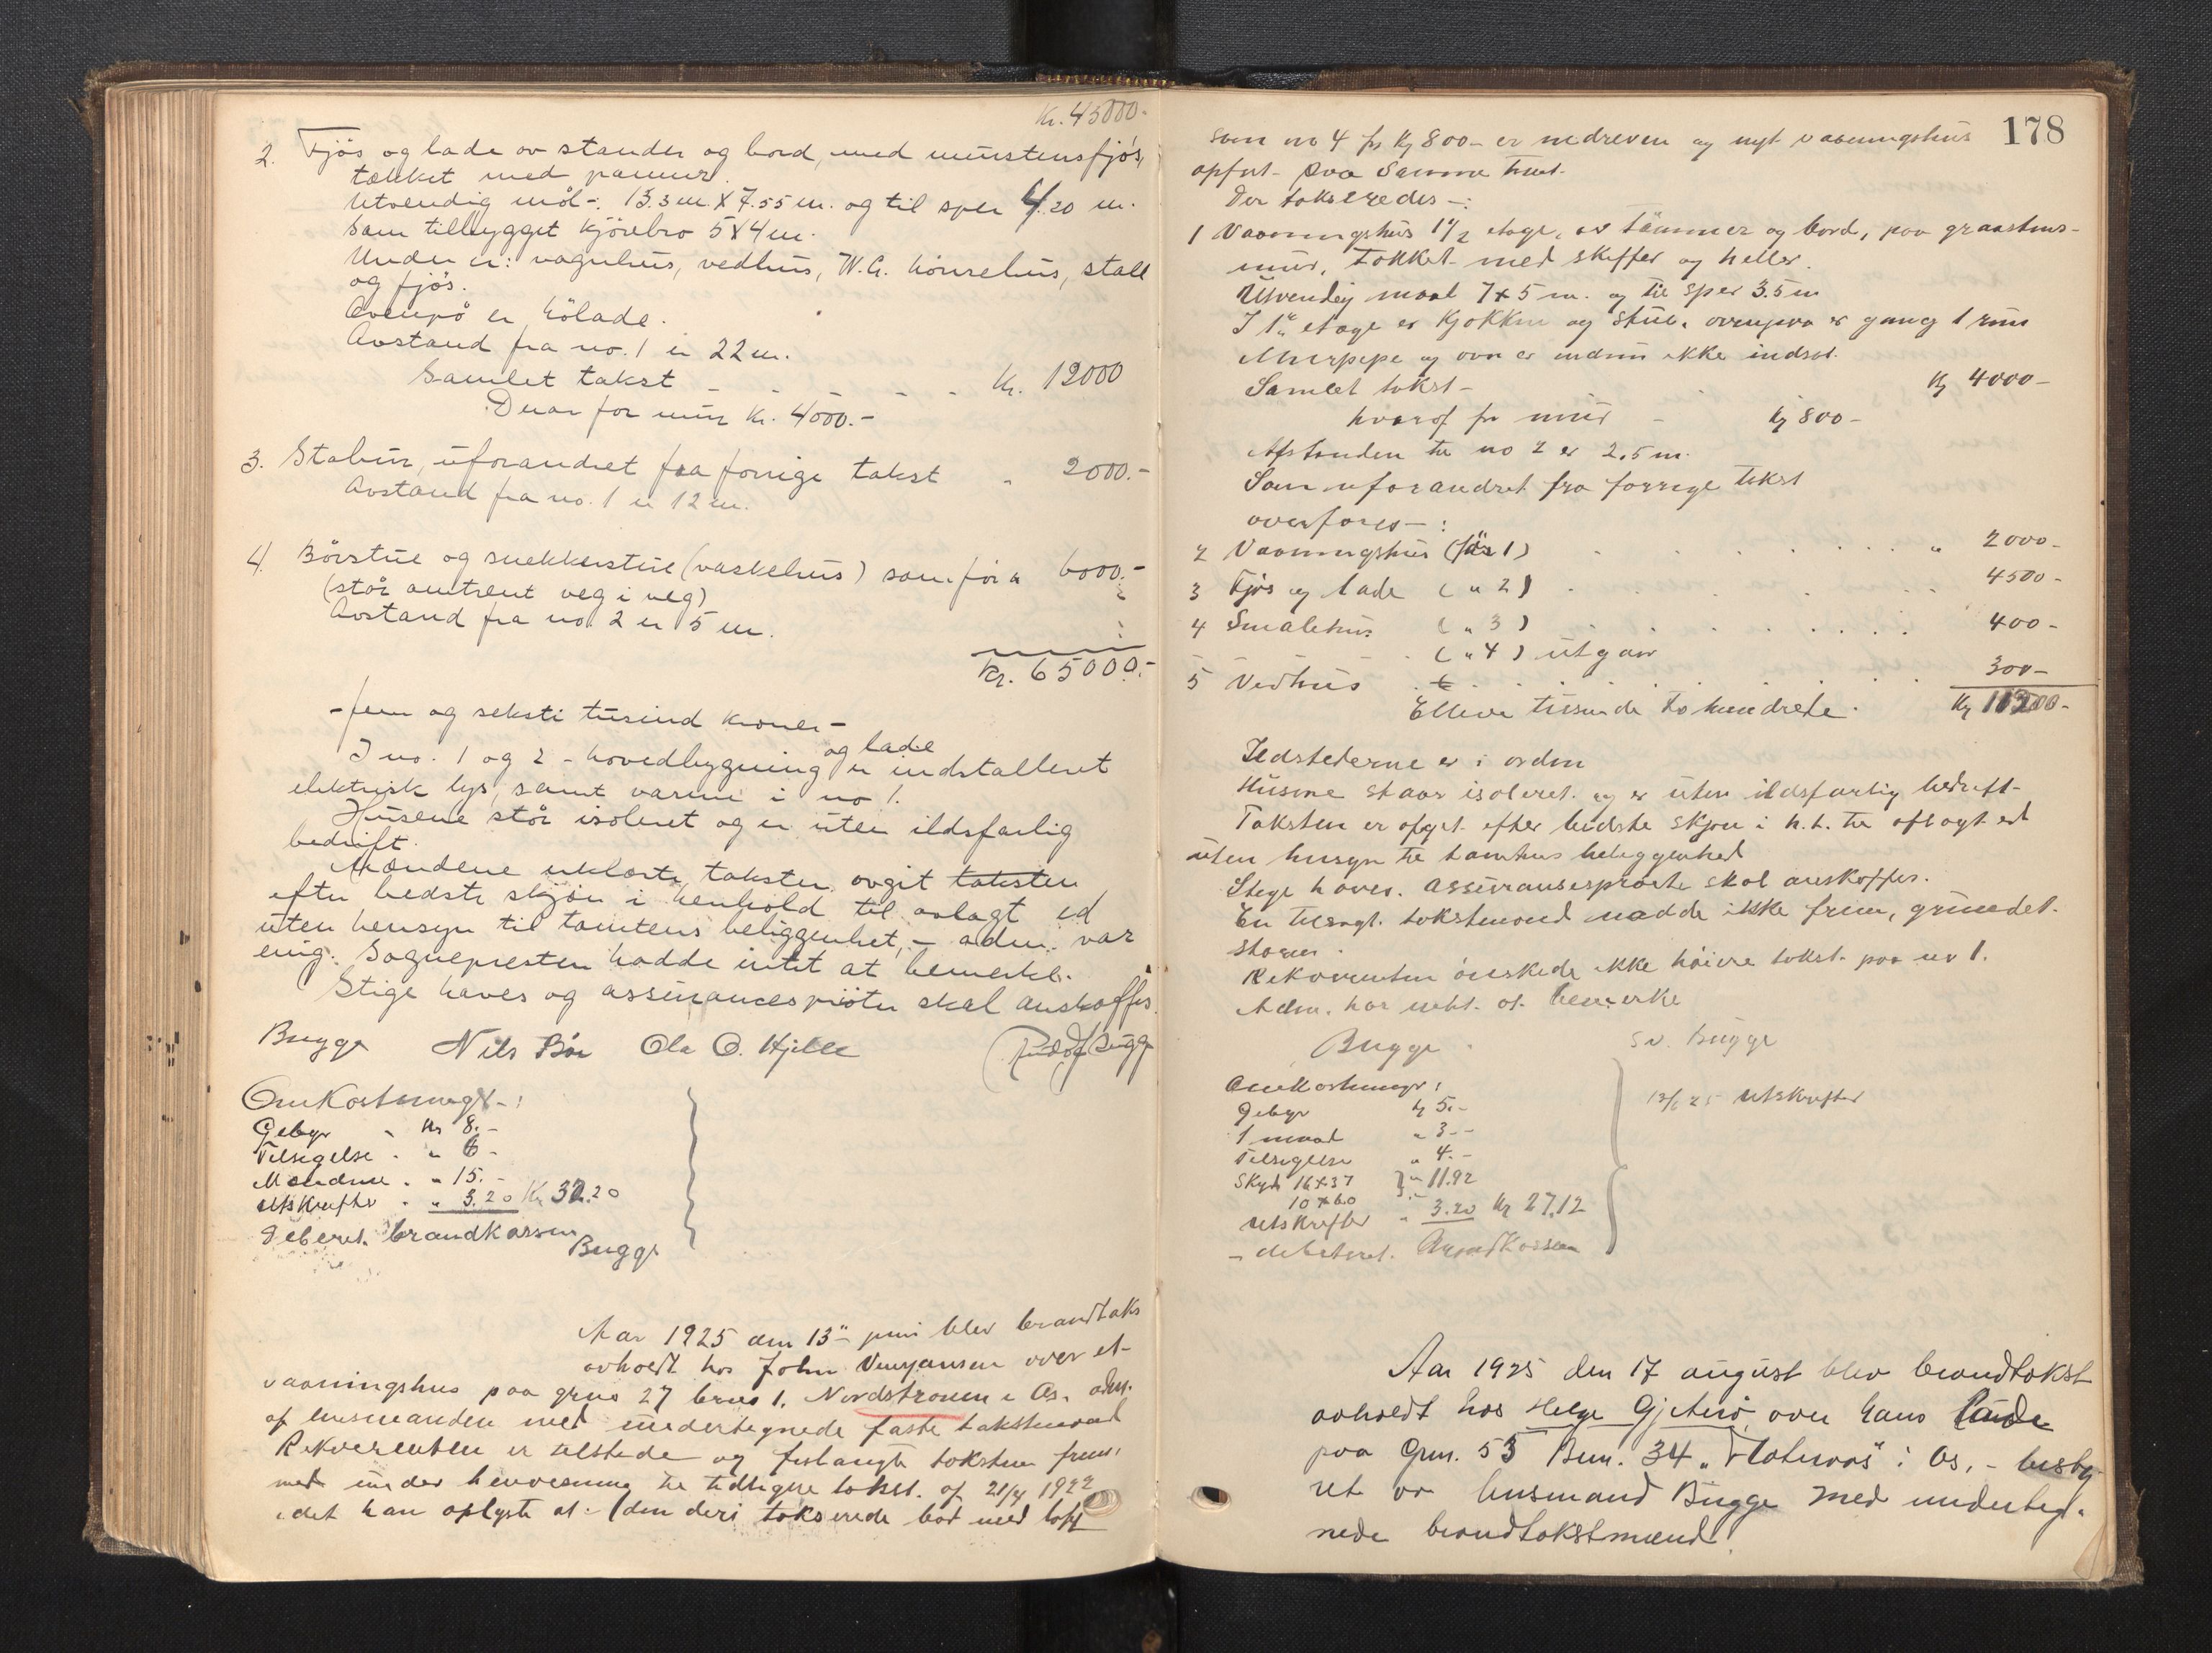 Kr. 45000.-
2. Fjös og lade av stander og bord, med murstensfjös,
tækket med panner.
Utvendig mål -: 13.3 m. X 7.55 m. og til sper 4.20 m.
Sam tilbygget kjörebro 5 X 4 m.
Under er: vognhus, vedhus, W.C. hönsehus, stall
og fjös.
Ovenpå er hölade.
Avstand fra no. 1 er 22 m.
Samlet takst - - - - - Kr. 12000
Derav for mur Kr. 4000.-
3. Stabur, uforandret fra forrige takst " 2000.-
Avstand fra no. 1 er 12 m.
4. Börstue og snekkerstue (vaskehus) som för " 6000.-
(står omtrent veg i veg)
Avstand fra no. 2 er 5 m.
Kr. 65000.-
- fem og seksti tusind kroner -
og lade
I no. 1 og 2 - hovedbygning er indstalleret
elektrisk lys, samt varme i no 1.
Husene står isoleret og er uten ildsfarlig
bedrift.
Mændene erklærte taksten avgit taksten
efter bedste skjön i henhold til avlagt ed
uten hensyn til tomtens beliggenhet, - adm. var
enig. Sognepresten hadde intet at bemerke.
Stige haves og assurancespröiter skal anskaffes.
Bugge Nils Böe Ola O. Hjelle Rudolf Bugge
Omkostninger -:
Gebyr - Kr 8.-
Tilsigelse - " 6 -
Mændene - " 15.-
Utskrifter - " 3.20 Kr 32.20
Deberet. brandkassen
Bugge
Aar 1925 den 13" juni blev brandtakst
avholdt hos John over et
vaaningshus paa grno 27 brno 1. Nordstronen i Os. adm.
af lensmanden med undertegnede faste takstmænd
Rekvirenten er tilstede og forlangte taksten frem,
met under henvisning til tidligere takst. af 21/4 1922
idet han oplyste at - (den deri takserede bod med loft

178
som no 4 for Kr 800 - er nedreven og nyt vaaningshus
opfört paa samme tomt.
Der takseredes -:
1 Vaaningshus 1 1/2 etage, av tömmer og bord, paa graastens-
mur, Tækket med skiffer og heller.
Utvendig maal 7 x 5 m. og til sper 3.5 m
I 1" etage er Kjøkken og stue, ovenpaa er gang 1 rum
Murpipe og ovn er endnu ikke indsat.
Samlet takst - Kr 4000 -
hvoraf for mur - Kr 800 -
Afstanden til no 2 er 2.5 m.
Som uforandret fra forrige takst
overføres - :
2 Vaaningshus (för 1) " 2000 -
3 Fjös og lade ( " 2) 4500 -
4 Smalehus ( " 3) 400 -
( " 4) utgaar
5 Vedhus 300 -
Elleve tusinde to hundrede. Kr 11200 -
Ildstederne er i orden
Husene staar isoleret og er uten ildsfarlig bedrift -
Taksten er afgit efter bedste skjøn i h.t. til aflagt ed
uten hensyn til tomtens beliggenhed
Stige haves. Assurancesprøite skal anskaffes.
En tilsagt takstmand nadde ikke frem, grundet
storm.
Rekvirenten ønskede ikke høiere takst paa no 1.
Adm. har intet at bemerke
Bugge Sv. Bugge
Omkostninger:
Gebyr Kr 5.-
1 mand " 3 --
Tilsigelse " 4.-
Skyds 16 x 37 } " 11.92
10 x 60
Utskrifter " 3.20 Kr 27.12
- debiteret. Brandkassen
13/6 25 Utskrifter
Aar 1925 den 17 august blev brandtakst
avholdt hos Helge Gjeterö over hans
paa Gnr. 53 Bnr. 34 i Os, - besty
ret av lensmand Bugge med underteg-
nede brandtakstmænd.